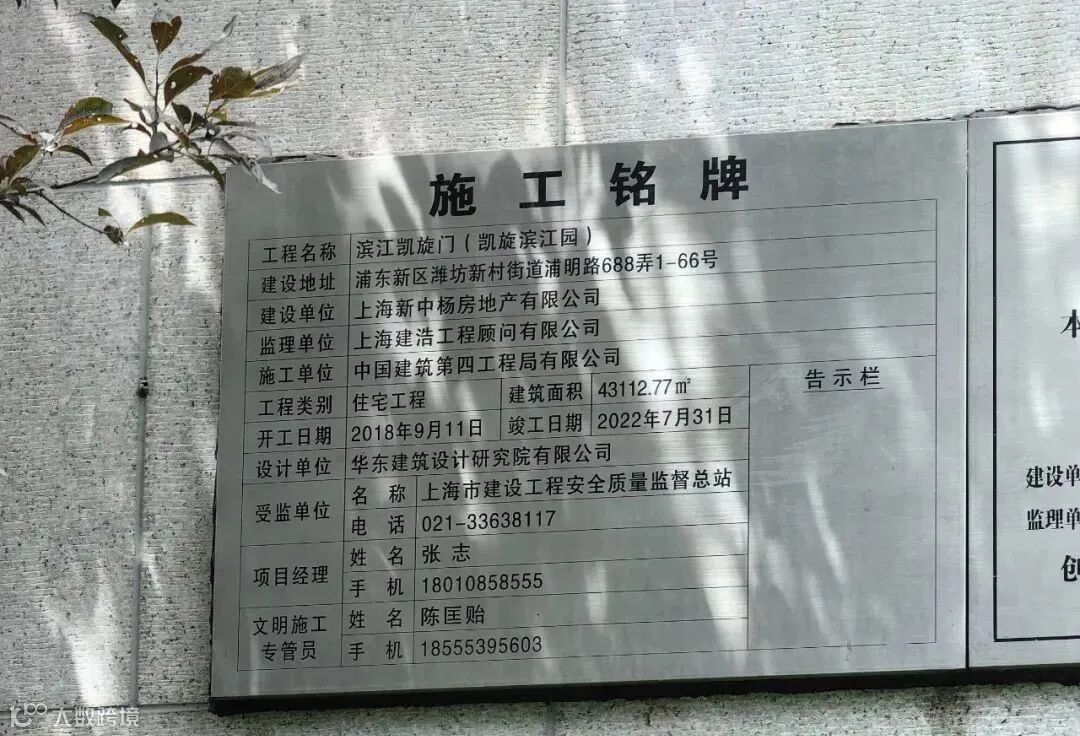 施工铭牌
工程名称 滨江凯旋门(凯旋滨江园)
建设地址 浦东新区潍坊新村街道浦明路688弄1-66号
建设单位 上海新中杨房地产有限公司
监理单位 上海建浩工程顾问有限公司
施工单位 中国建筑第四工程局有限公司
工程类别 住宅工程 建筑面积 43112.77㎡
告示栏
开工日期 2018年9月11日 竣工日期 2022年7月31日
设计单位 华东建筑设计研究院有限公司
受监单位 名称 上海市建设工程安全质量监督总站
电话 021-33638117
项目经理 姓名 张志
手机 18010858555
文明施工专管员 姓名 陈匡贻
手机 18555395603
本
建设单
监理单
创
大数跨境